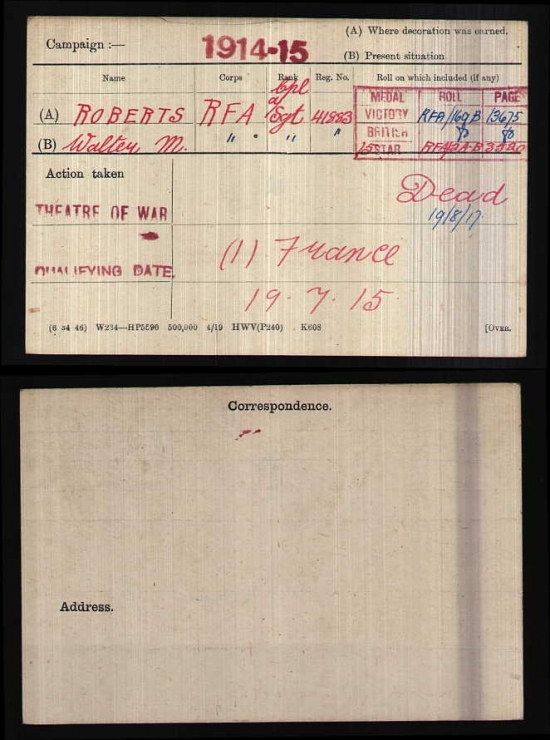 (A) Where decoration was earned.
Campaign :— 1914-15
(B) Present situation.
Name Corps Rank Reg. No. Roll on which included (if any)
Cpl
MEDAL ROLL PAGE
(A) ROBERTS RFA Sgt 41883 VICTORY RFA/169B 13675
(B) Walter M. " " " BRITISH do do
15 STAR RFA/2A-B
Action taken
Dead
19/8/17
THEATRE OF WAR
(1) France
QUALIFYING DATE.
19.7.15
(6 34 46) W234—HP5590 500,000 4/19 HWV(P240) K608 [OVER.
Correspondence.
Address.